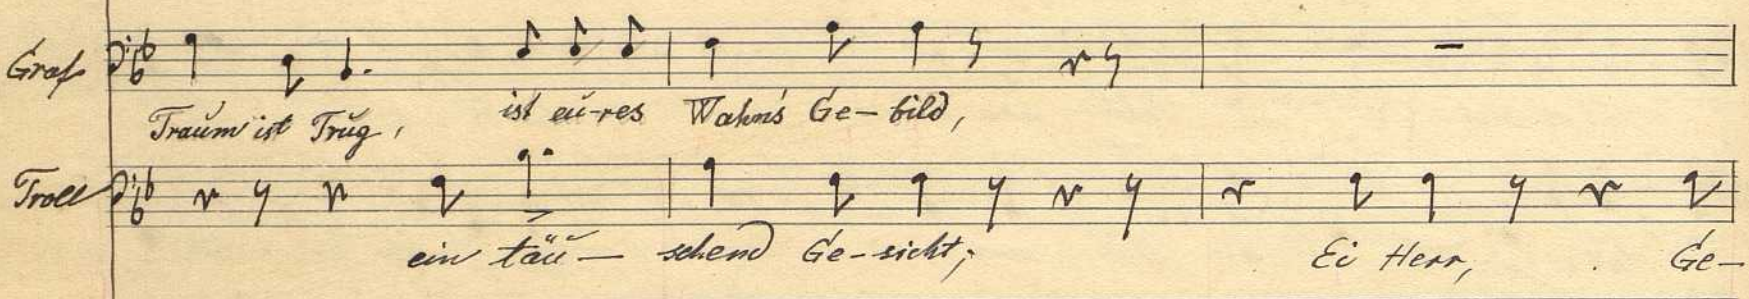 Graf
Traum ist Trug, ist eu-res Wahns Ge-bild,
Troll
ein täu- schend Ge-sicht; Ei Herr, Ge-